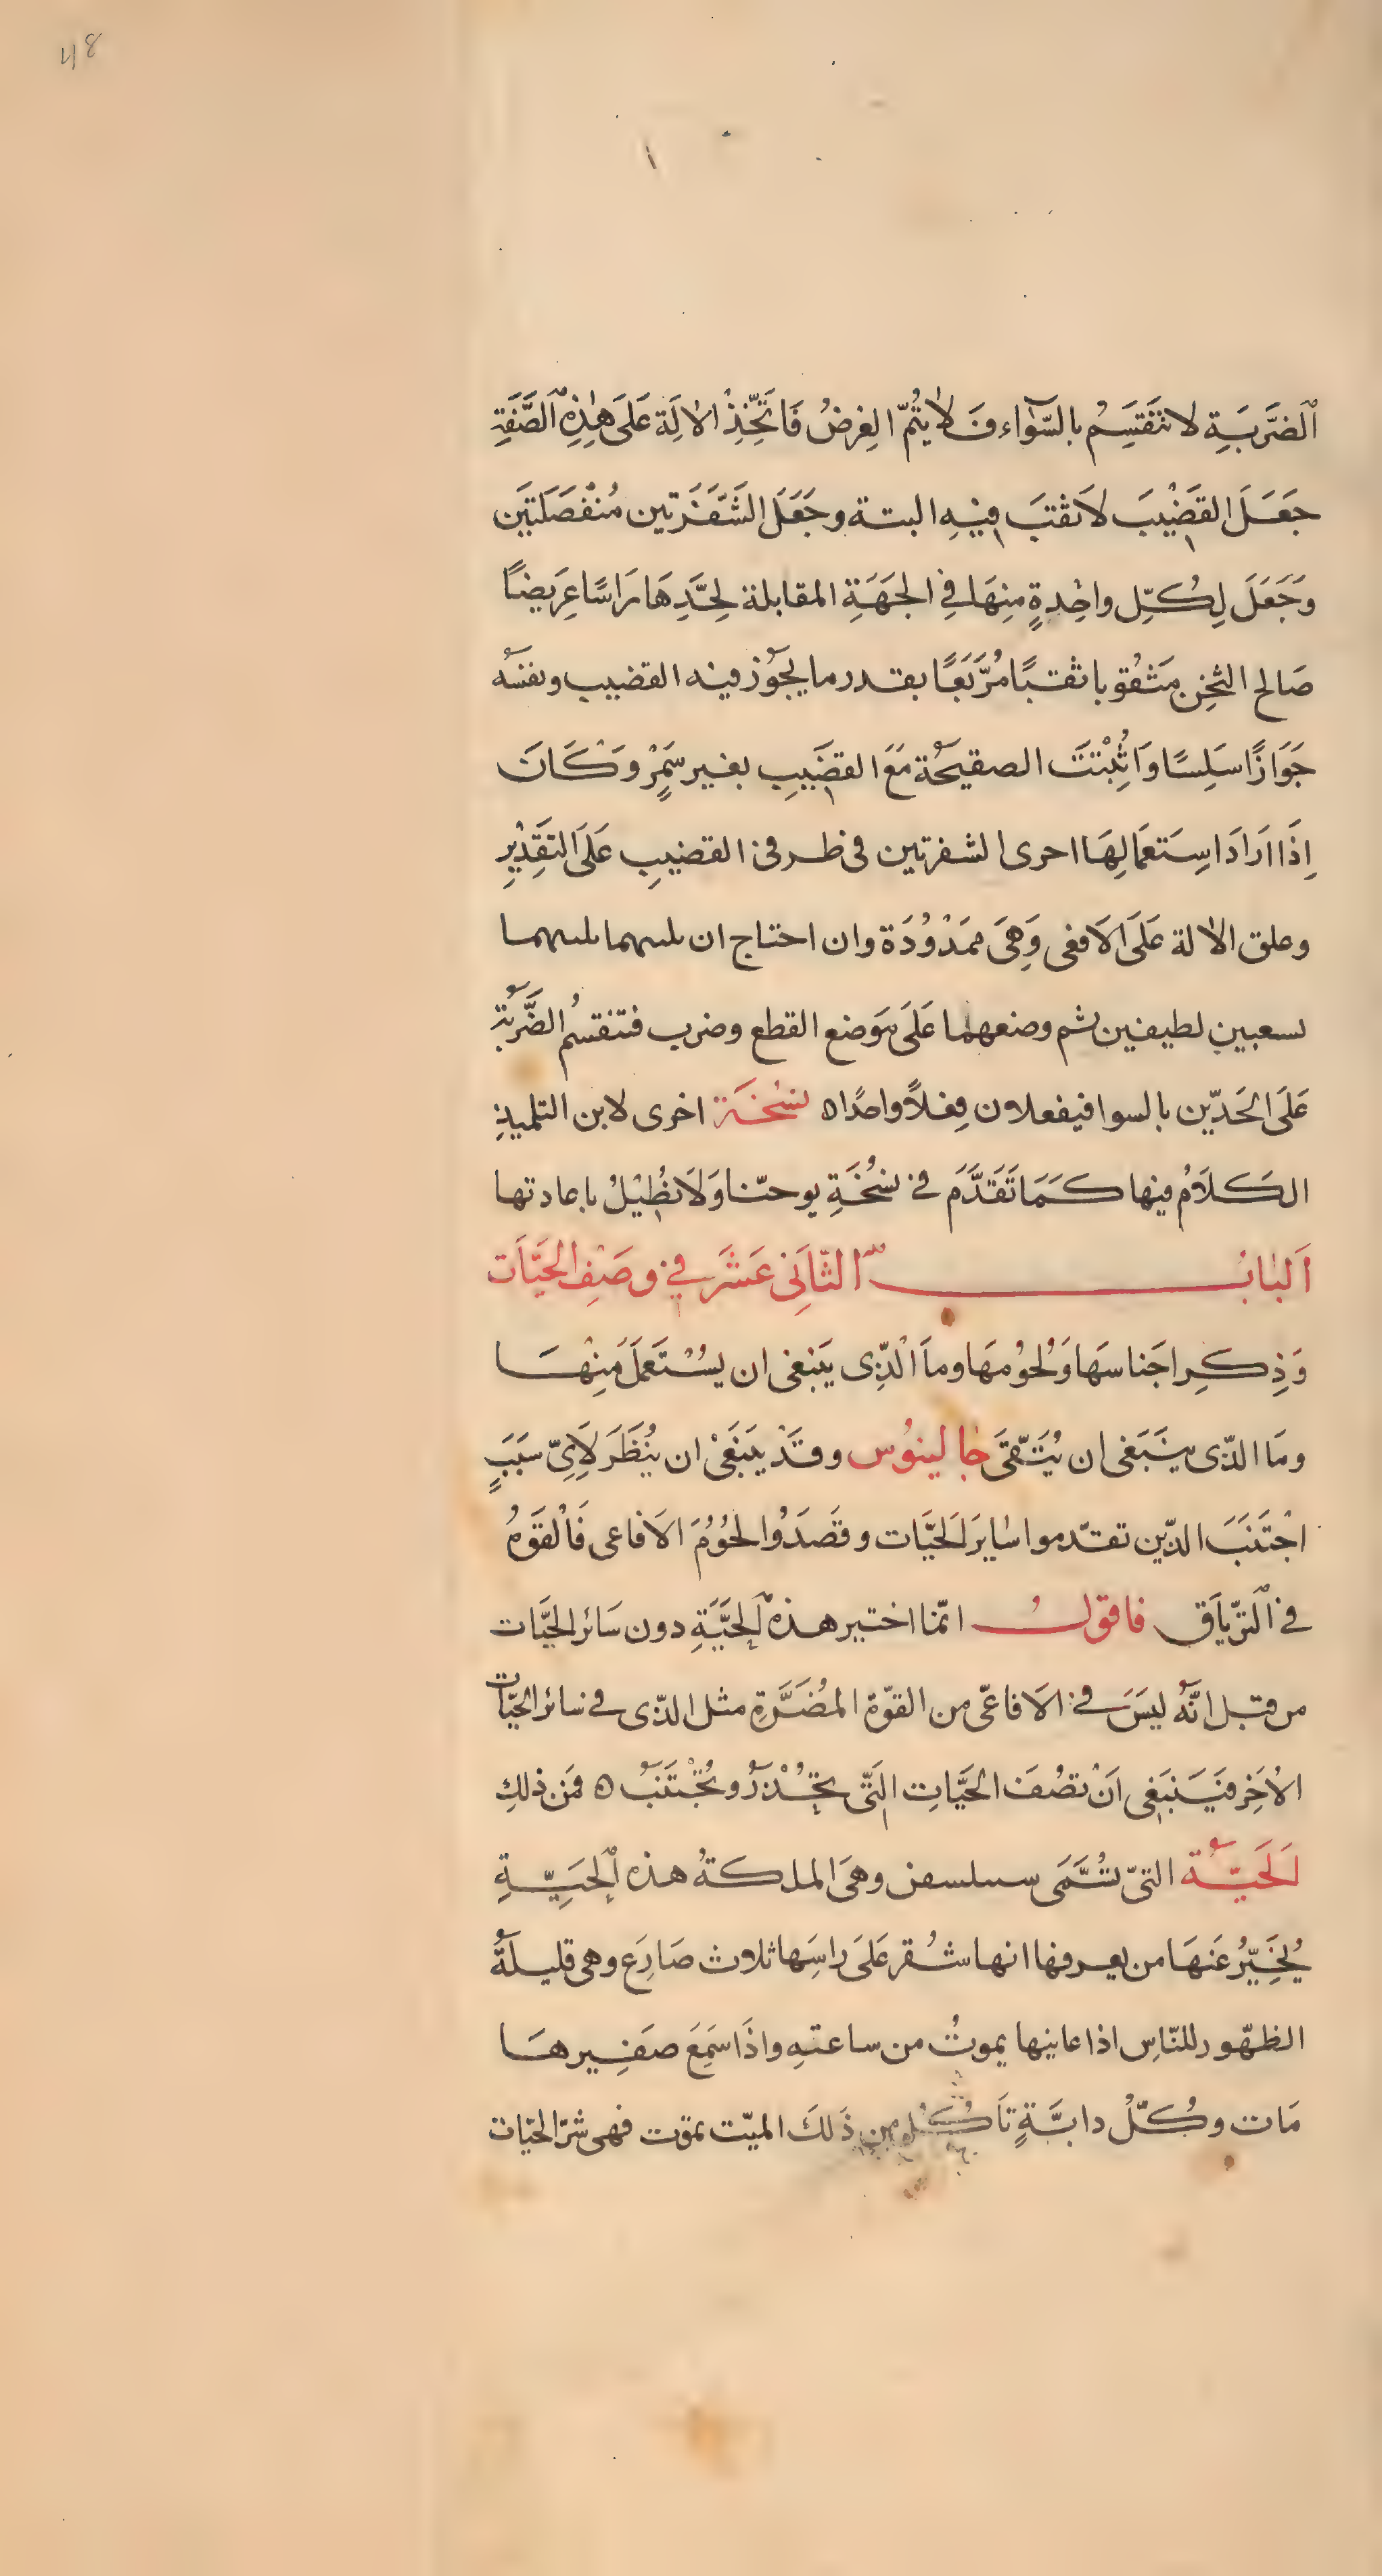 48
الضَّرَبَةِ لا تنَقَسِمُ بالسّوآء فَلا يتُمّ الغِرضُ فَاتَخِّذِ الالَةِ عَلىَ هٰذِهِ الصَّفَةِ
جَعَلَ القَضْيبَ لاَ نقبَ فيْهِ البتة وجَعَلَ الشَّفَرَتين مُنفْصَلَتيَن
وَجَعَلَ لِكُلِّ واحِدةٍ مِنهَا فِي الجَهَةِ المقابلة لِحَدِّهَا رَاسًا عِرَيضًا
صَالح الثخِن مَثقُوبا ثقبًا مُرَّبَعًا بقدر ما يجَوُز فيه القضيب ونفسَهُ
جَوَازًا سَلِسًا وَاثُبْتِتَ الصفيحَة مَعَ القضَيبِ بغير سَمِرْ وَكَانَ
اِذَا ارَادَ اسِتَعمَالِهَا احرى الشفرتين فى طرفى القضيبِ عَلىَ التقَدِيْرِ
وعلق الالة عَلىَ الاَفعى وَهِىَ ممَدْوُدَة وان احتاج ان
لطيفين ثم وضعهما عَلىَ مَوضع القطع وضرب فتنقسمُ الضَّرَبةُ
عَلىَ الحَدّين بالسوا فيفعلان فِعْلاً واحدًا ه نسُخَة اخرى لابن التلميذِ
الكَلاَمُ فيها كَمَا تَقَدَّمَ فى نسُخَةِ يوحنّا وَلاَ نطُيْلُ باعادتها
اَلبابُ الثّاَنِى عَشَر فِي وصَفِ الحَيّاَت
وَذِكِر اجَناسَها وَلحُوُمهَا ومَا الْذِّى يَنبغى ان يسُتْعَملَ مَنِهْا
ومَا الذّى ينَبَغى ان يُتَّقىَ جاَلينوُس وقَدْ يَنبَغىْ ان يُنُظَرَ لاَِىِّ سبَبٍَ
اجْتَنَبَ الذّين تقدّموا سايرَ اَلحيَّات وقَصَدوُا لحوُمَ الاَفاعى فَالْقَوهُ
فى التّرِيَاق فاقولُ انمّا اختير هذه الحَيَّةِ دون سَائر الحيَّات
من قبل انّهُ ليسَ فى الاَفاعّى من القوّة المضَرَّةِ مثل الذّى فى سائر الحيّات
الاُخَرِ فيَنَبَغِى انَْ تصُفَ الحَيَّاتِ التَّى تحُذْرُ وتجُتْنَبُ ه فمَن ذلكِ
اَلحَيّةُ التىّ تسُمَّى وهىَ الملكةُ هذه الحَيّةِ
يُخَبِّرُ عَنهَا من يعرفها انها شُقر عَلىَ راسِهَا ثلاث صَارِع وهى قليلَةُ
الظهّور للنّاسِ اذا عاينها يموتُ من ساعتهِ واذَا سَمِعَ صَفِيرهَا
مَات وكُلّ دابَّةٍ تاَكُلُ من ذَلكَ الميّت يموَت فهى شرّ الحيّات